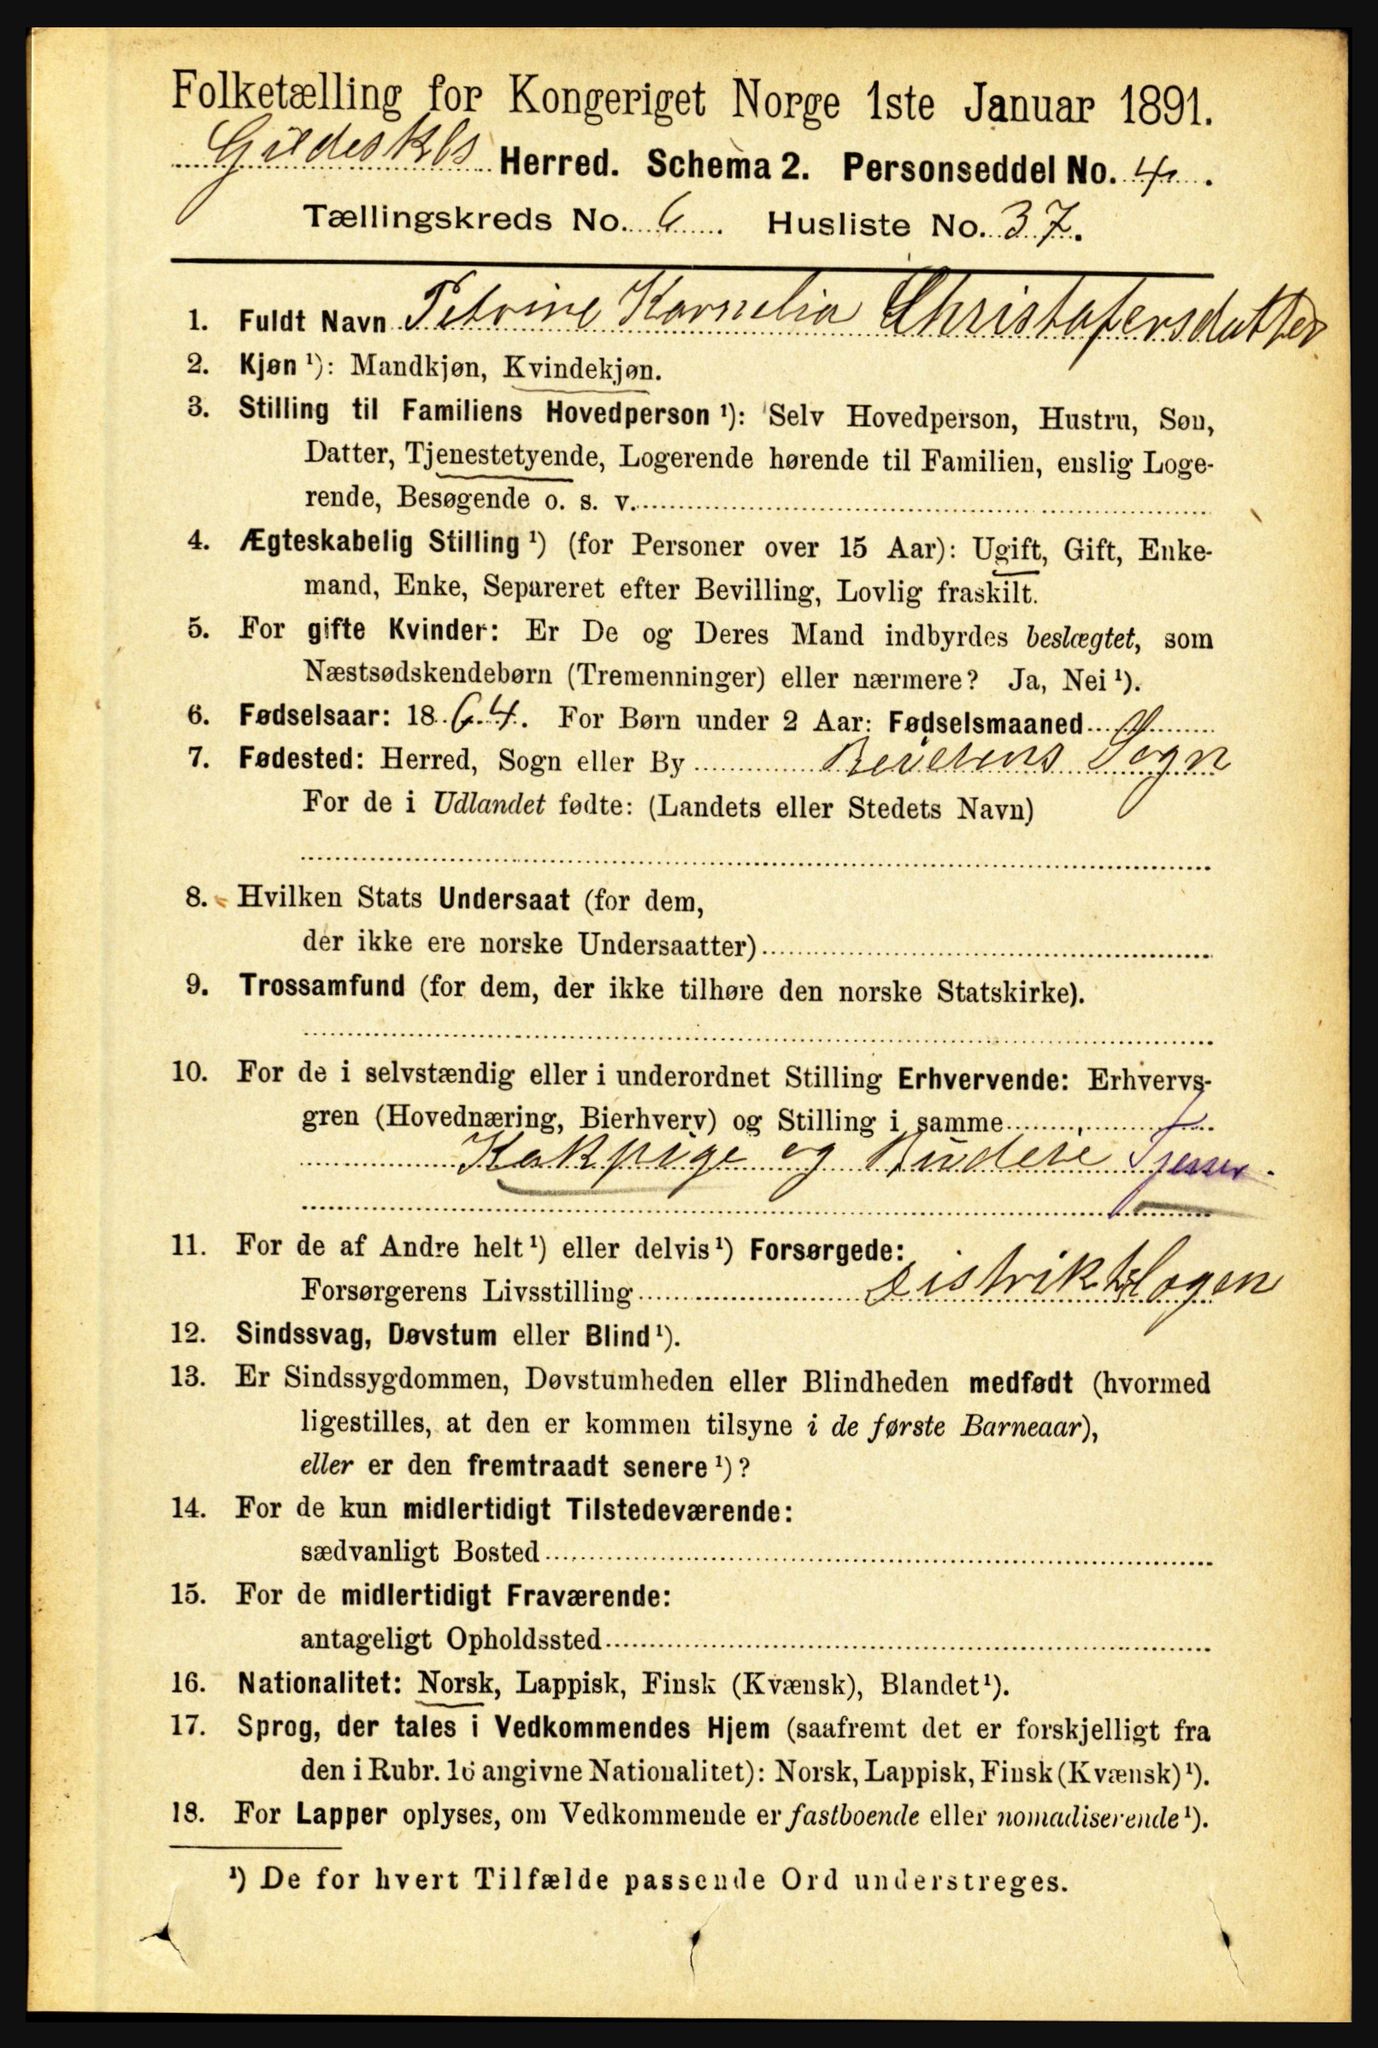 Folketælling for Kongeriget Norge 1ste Januar 1891.
Gildeskls Herred. Schema 2. Personseddel No. 4.
Tællingskreds No. 6. Husliste No. 37.
1. Fuldt Navn Petrine Kornelia Christofersdatter
2. Kjøn ¹): Mandkjøn, Kvindekjøn.
3. Stilling til Familiens Hovedperson ¹): Selv Hovedperson, Hustru, Søn,
Datter, Tjenestetyende, Logerende hørende til Familien, enslig Loge-
rende, Besøgende o. s. v.
4. Ægteskabelig Stilling ¹) (for Personer over 15 Aar): Ugift, Gift, Enke-
mand, Enke, Separeret efter Bevilling, Lovlig fraskilt.
5. For gifte Kvinder: Er De og Deres Mand indbyrdes beslægtet, som
Næstsødskendebørn (Tremenninger) eller nærmere? Ja, Nei ¹).
6. Fødselsaar: 1864. For Børn under 2 Aar: Fødselsmaaned
7. Fødested: Herred, Sogn eller By Beierens Sogn
For de i Udlandet fødte: (Landets eller Stedets Navn)
8. Hvilken Stats Undersaat (for dem,
der ikke ere norske Undersaatter)
9. Trossamfund (for dem, der ikke tilhøre den norske Statskirke).
10. For de i selvstændig eller i underordnet Stilling Erhvervende: Erhvervs-
gren (Hovednæring, Bierhverv) og Stilling i samme
Kokpige og Budeie
11. For de af Andre helt ¹) eller delvis ¹) Forsørgede:
Forsørgerens Livsstilling Distriktslægen
12. Sindssvag, Døvstum eller Blind ¹).
13. Er Sindssygdommen, Døvstumheden eller Blindheden medfødt (hvormed
ligestilles, at den er kommen tilsyne i de første Barneaar),
eller er den fremtraadt senere ¹)?
14. For de kun midlertidigt Tilstedeværende:
sædvanligt Bosted
15. For de midlertidigt Fraværende:
antageligt Opholdssted
16. Nationalitet: Norsk, Lappisk, Finsk (Kvænsk), Blandet ¹).
17. Sprog, der tales i Vedkommendes Hjem (saafremt det er forskjelligt fra
den i Rubr. 16 angivne Nationalitet): Norsk, Lappisk, Finsk (Kvænsk) ¹).
18. For Lapper oplyses, om Vedkommende er fastboende eller nomadiserende ¹).
¹) De for hvert Tilfælde passende Ord understreges.